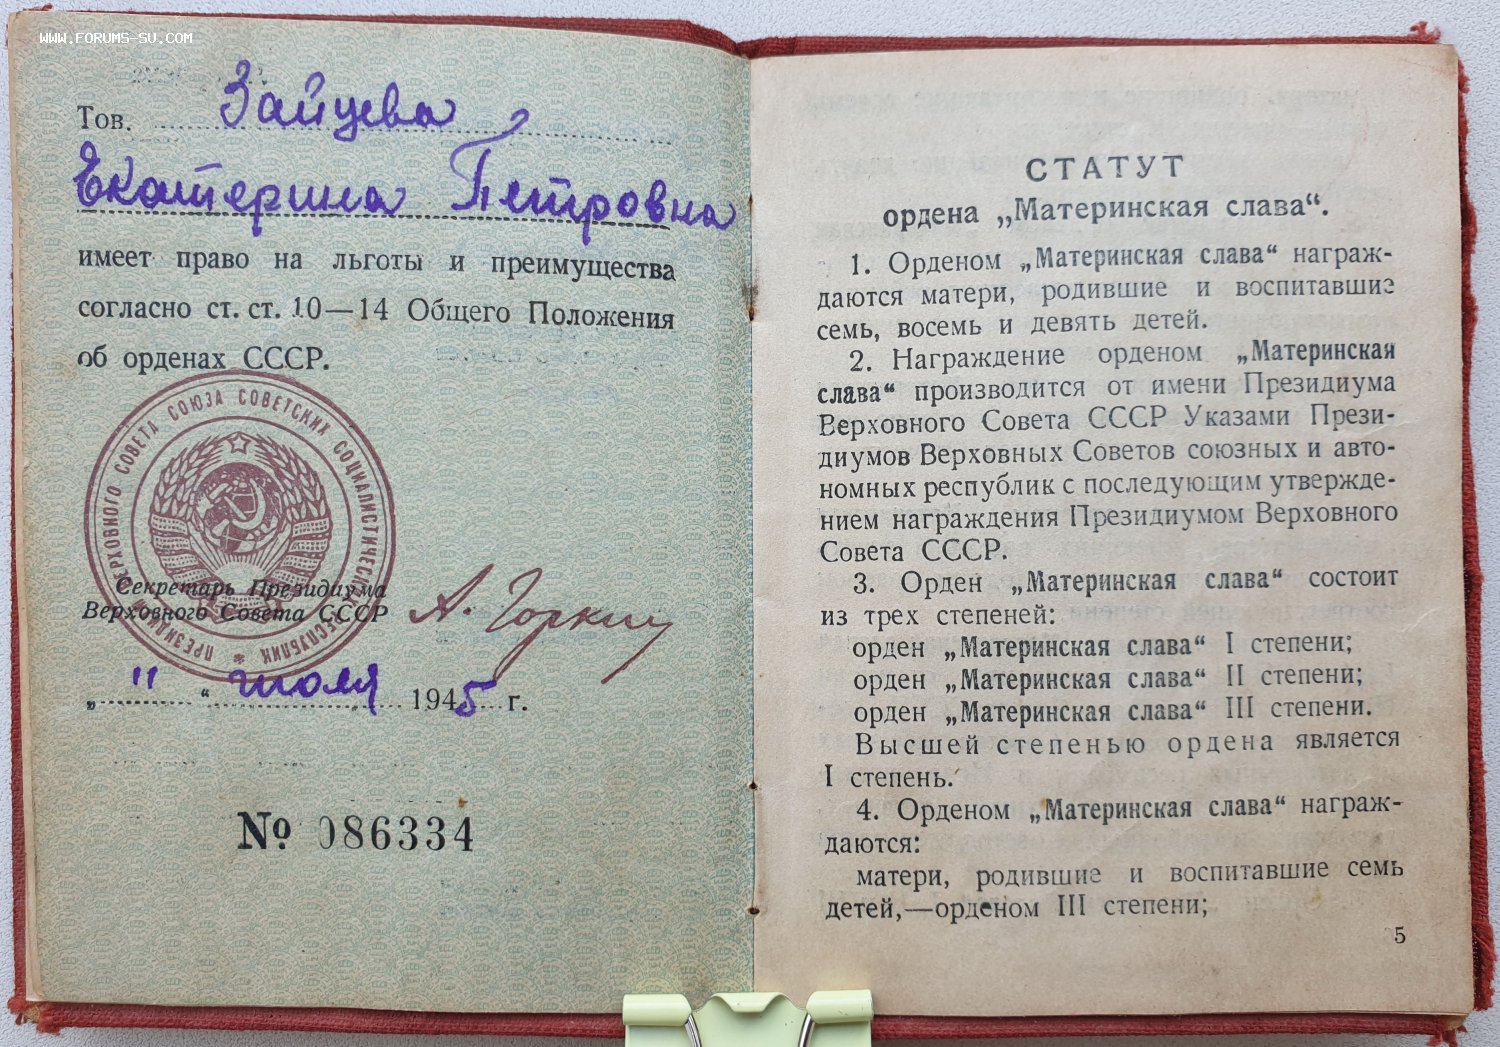 WWW.FORUMS-SU.COM
Тов. Зайцева
Екатерина Петровна
имеет право на льготы и преимущества
согласно ст. ст. 10—14 Общего Положения
об орденах СССР.
ПРЕЗИДИУМ ВЕРХОВНОГО СОВЕТА СОЮЗА СОВЕТСКИХ СОЦИАЛИСТИЧЕСКИХ РЕСПУБЛИК
Секретарь Президиума
Верховного Совета СССР А. Горкин
„ " “ июля 1945 г.
№ 086334
СТАТУТ
ордена „Материнская слава“.
1. Орденом „Материнская слава“ награж-
даются матери, родившие и воспитавшие
семь, восемь и девять детей.
2. Награждение орденом „Материнская
слава“ производится от имени Президиума
Верховного Совета СССР Указами Прези-
диумов Верховных Советов союзных и авто-
номных республик с последующим утвержде-
нием награждения Президиумом Верховного
Совета СССР.
3. Орден „Материнская слава“ состоит
из трех степеней:
орден „Материнская слава“ I степени;
орден „Материнская слава“ II степени;
орден „Материнская слава“ III степени.
Высшей степенью ордена является
I степень.
4. Орденом „Материнская слава“ награж-
даются:
матери, родившие и воспитавшие семь
детей,—орденом III степени;
5